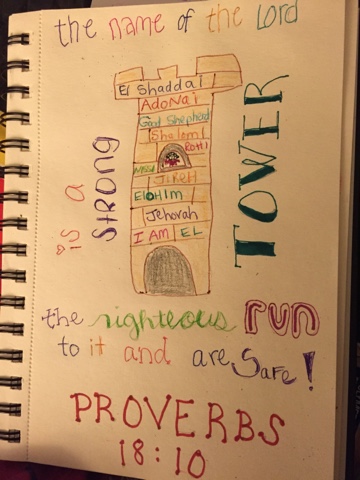 the name of the Lord
is a
STRONG
TOWER
El Shaddai
AdoNai
Good Shepherd
Shalom
ROHI
Nissi
JiREH
ElOHIM
Jehovah
I AM EL
the righteous run
to it and are Safe!
PROVERBS
18:10